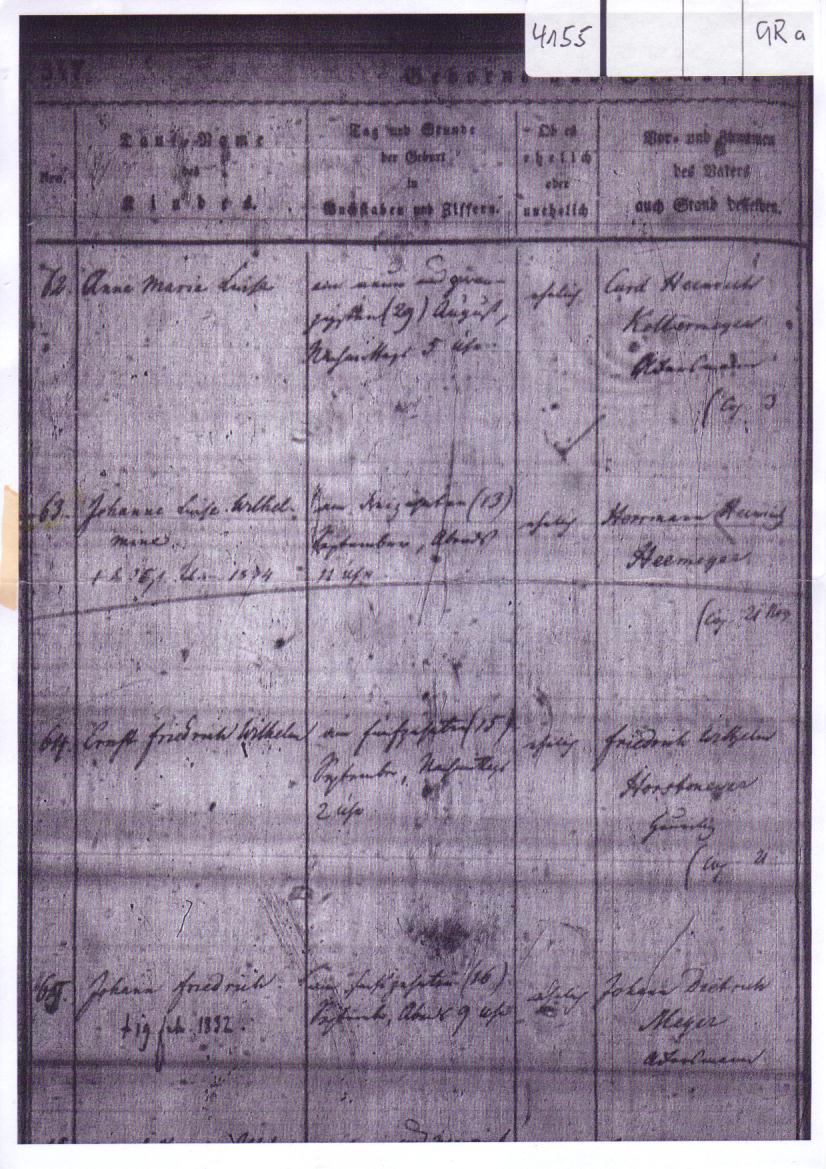 4155
GR a
347.
Geborne und
Nro.
Tauf-Name
des
Kindes.
Tag und Stunde
der Geburt
in
Buchstaben und Ziffern.
Ob es
ehelich
oder
unehelich
Vor- und Zunamen
des Vaters
auch Stand desselben.
62.
Anne Marie Luise
am neun und zwan-
zigsten (29) August,
Nachmittags 5 Uhr.
ehelich
Cord Heinrich
Ackersmann
(Col. 3
63.
Johanne Luise Wilhel-
mine.
1874
am dreizehnten (13)
September, Abends
11 Uhr
ehelich
Herrmann Heinrich
Heemeyer
64.
Ernst Friedrich Wilhelm
am fünfzehnten (15)
September, Nachmittags
2 Uhr
ehelich
Friedrich Wilhelm
Horstmeyer
65.
Johann Friedrich.
1832.
am sechszehnten (16)
September, Abends 9 Uhr
ehelich
Johann Diedrich
Meyer
Ackersmann